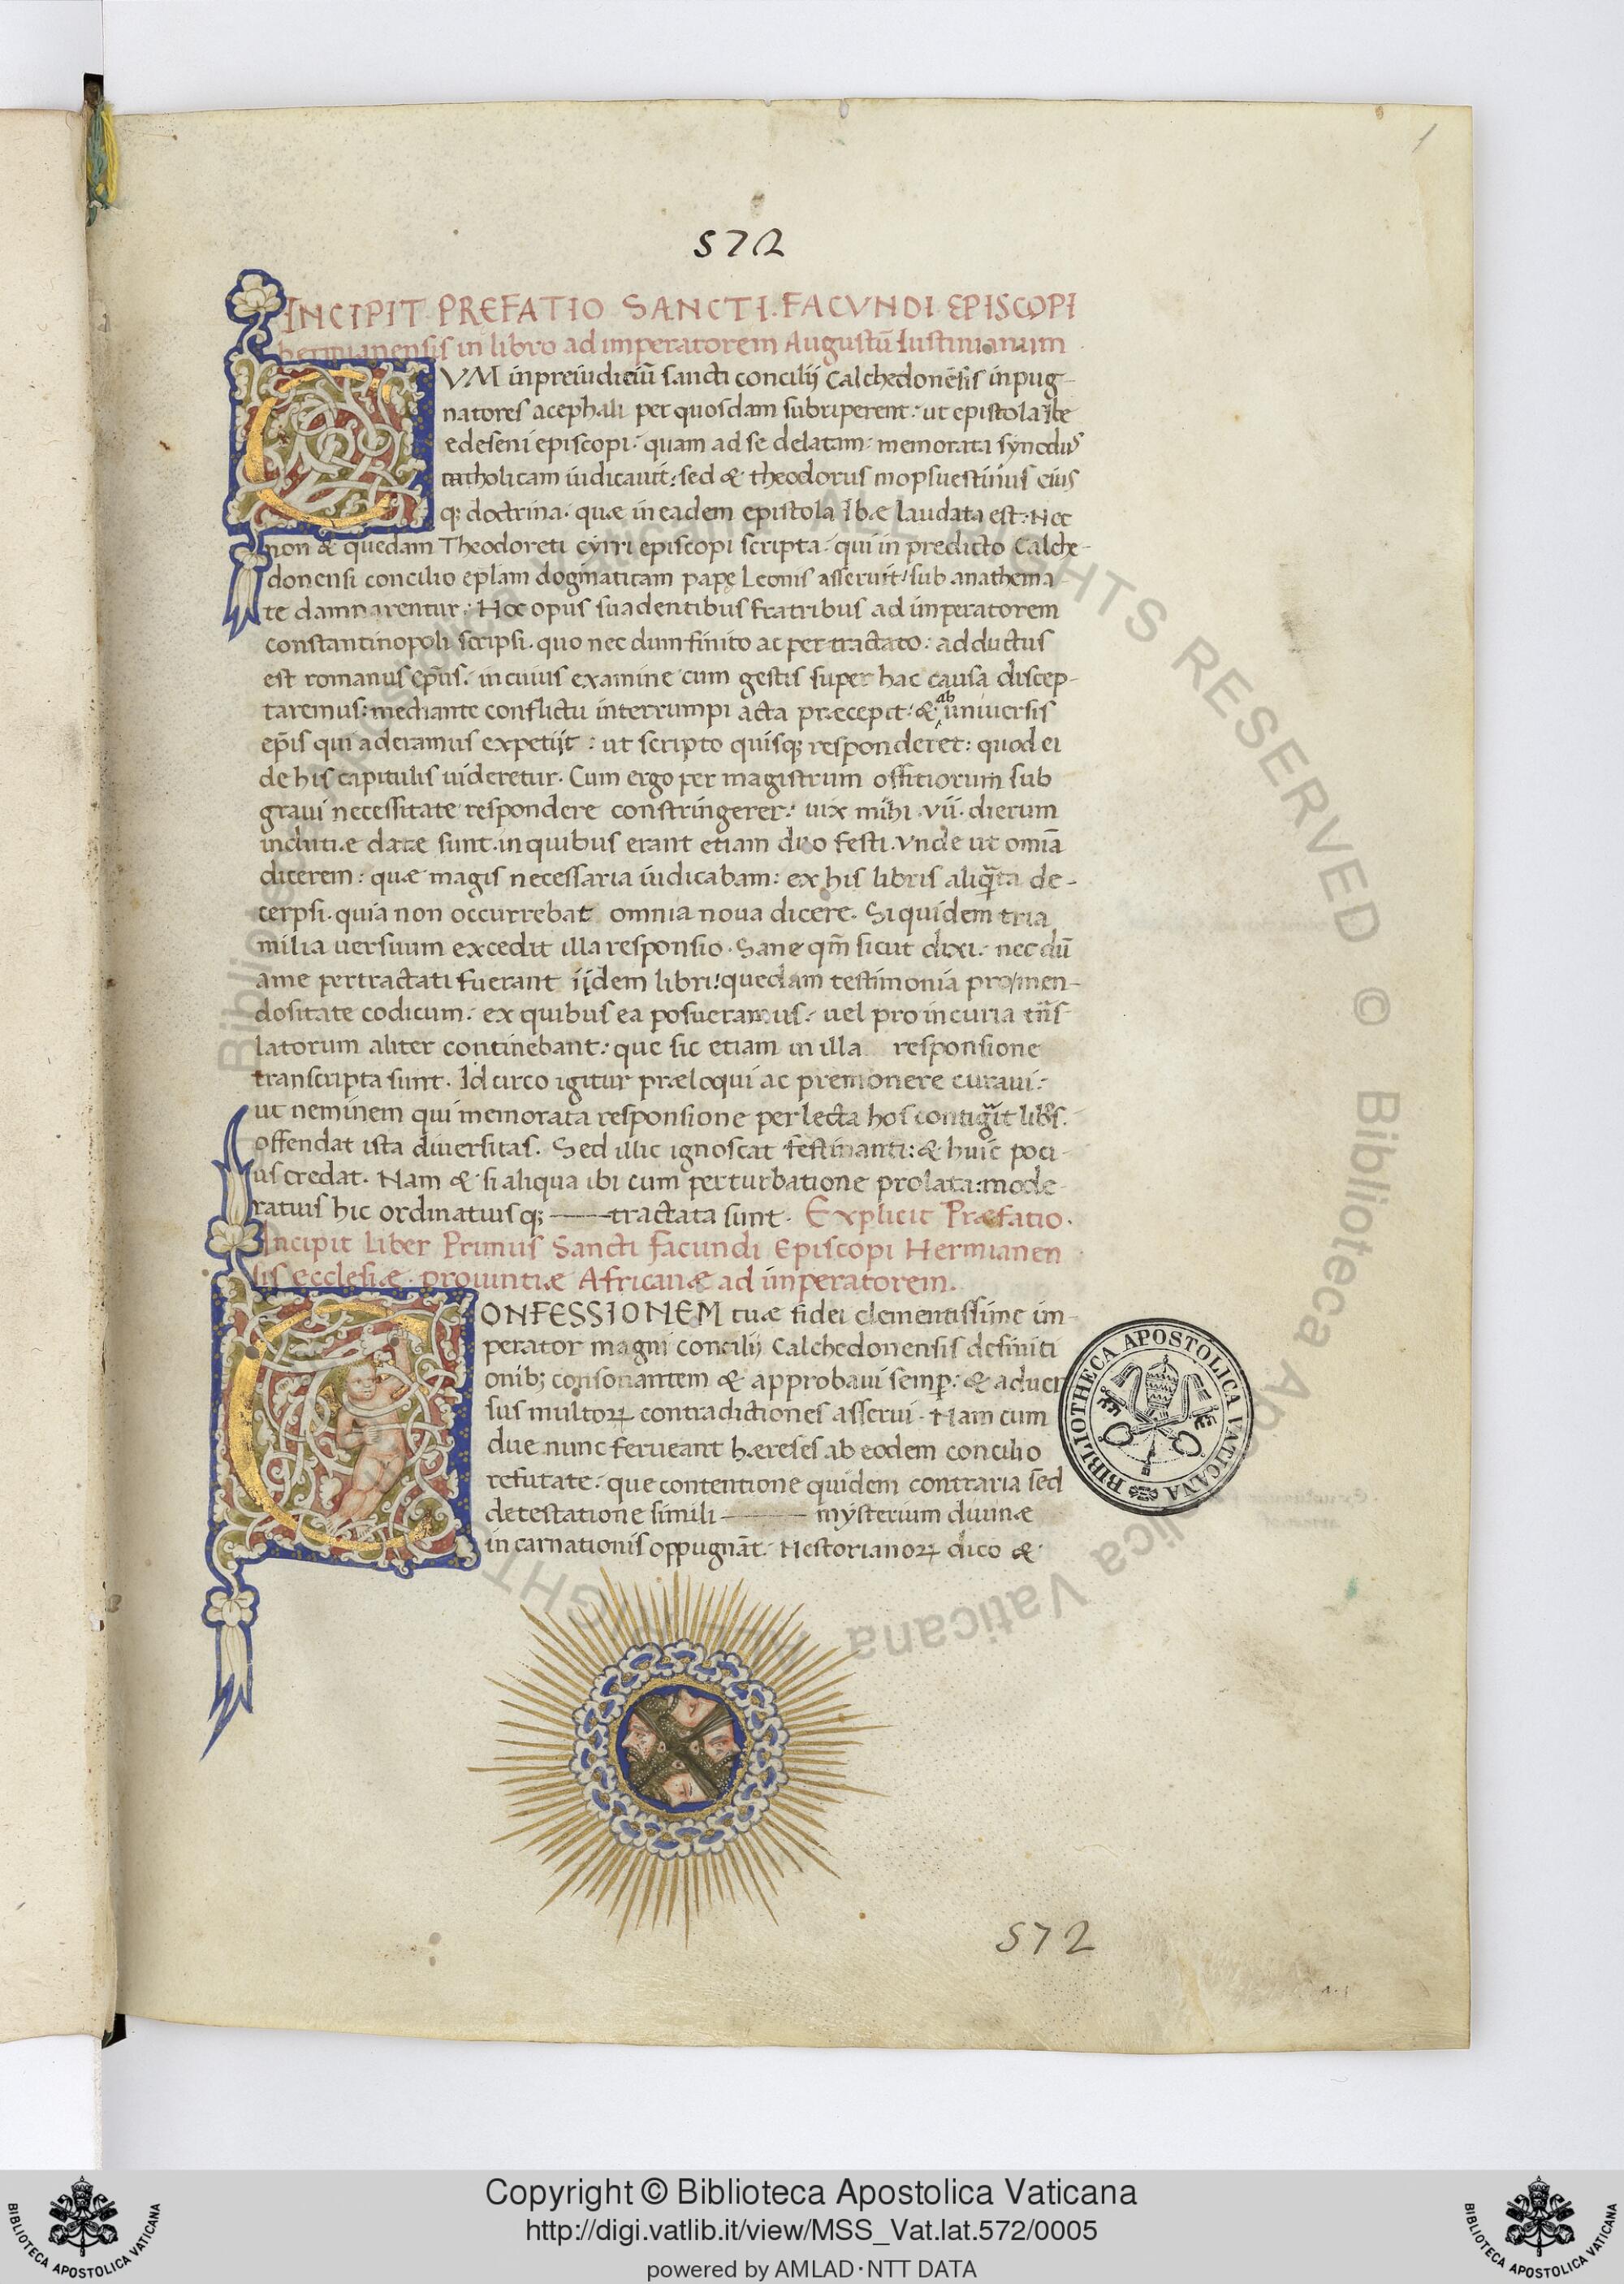 1
572
INCIPIT PREFATIO SANCTI. FACVNDI. EPISCOPI
hermianensis in libro ad imperatorem Augustũ Iustinianum
CVM inpreiudiciũ sancti concilij Calchedonẽsis inpug-
natores acephali per quosdam subriperent: ut epistola Ibe
edeseni episcopi. quam ad se delatam. memorata synodus
catholicam iudicauit: sed & theodorus mopsuestinus eius
q; doctrina. quæ in eadem epistola Ibæ laudata est: Nec
non & quedam Theodoreti cyrri episcopi scripta. qui in predicto Calche-
donensi concilio eplam dogmaticam papę Leonis asseruit: sub anathema-
te damnarentur: Hoc opus suadentibus fratribus ad imperatorem
constantinopoli scripsi. quo nec dum finito ac pertractato: adductus
est romanus ep̃us. in cuius examine cum gestis super hac causa discep-
taremus: mediante conflictu interrumpi acta præcepit: & ab uniuersis
ep̃is qui aderamus expetijt: ut scripto quisq; responderet: quod ei
de his capitulis uideretur. Cum ergo per magistrum offitiorum sub
graui necessitate respondere constringerer: uix mihi .vii. dierum
indutiæ datæ sunt. in quibus erant etiam duo festi. Vnde ut omĩa
dicerem: quæ magis necessaria iudicabam: ex his libris aliq̃ta de-
cerpsi. quia non occurrebat omnia noua dicere. Siquidem tria
milia uersuum excedit illa responsio. Sane qm̃ sicut dixi: nec dũ
ame pertractati fuerant iidem libri: quedam testimonia pro men-
dositate codicum. ex quibus ea posueramus. uel pro incuria trãs-
latorum aliter continebant: que sic etiam in illa responsione
transcripta sunt. Idcirco igitur præloqui ac premonere curaui:
ut neminem qui memorata responsione perlecta hos contigãit libros.
offendat ista diuersitas. Sed illic ignoscat festinanti: & huic poci-
us credat. Nam & si aliqua ibi cum perturbatione prolata: mode-
ratius hic ordinatiusq; ——tractata sunt. Explicit Præfatio.
Incipit liber Primus Sancti facundi Episcopi Hermianen
sis ecclesiæ. prouintiæ Africanæ ad imperatorem.
CONFESSIONEM tuæ fidei clementissime im-
perator magni concilij Calchedonensis definiti
onib; consonantem & approbaui semp̲: & aduer
sus multoꝝ contradictiones asserui. Nam cum
due nunc ferueant hæreses ab eodem concilio
refutate. que contentione quidem contraria sed
detestatione simili —— mysterium diuinæ
incarnationis oppugnãt. Nestorianoꝝ dico &
BIBLIOTHECA APOSTOLICA VATICANA
572
Biblioteca Apostolica Vaticana ALL RIGHTS RESERVED © Biblioteca Apostolica Vaticana
Copyright © Biblioteca Apostolica Vaticana
http://digi.vatlib.it/view/MSS_Vat.lat.572/0005
powered by AMLAD·NTT DATA
BIBLIOTECA APOSTOLICA VATICANA
BIBLIOTECA APOSTOLICA VATICANA